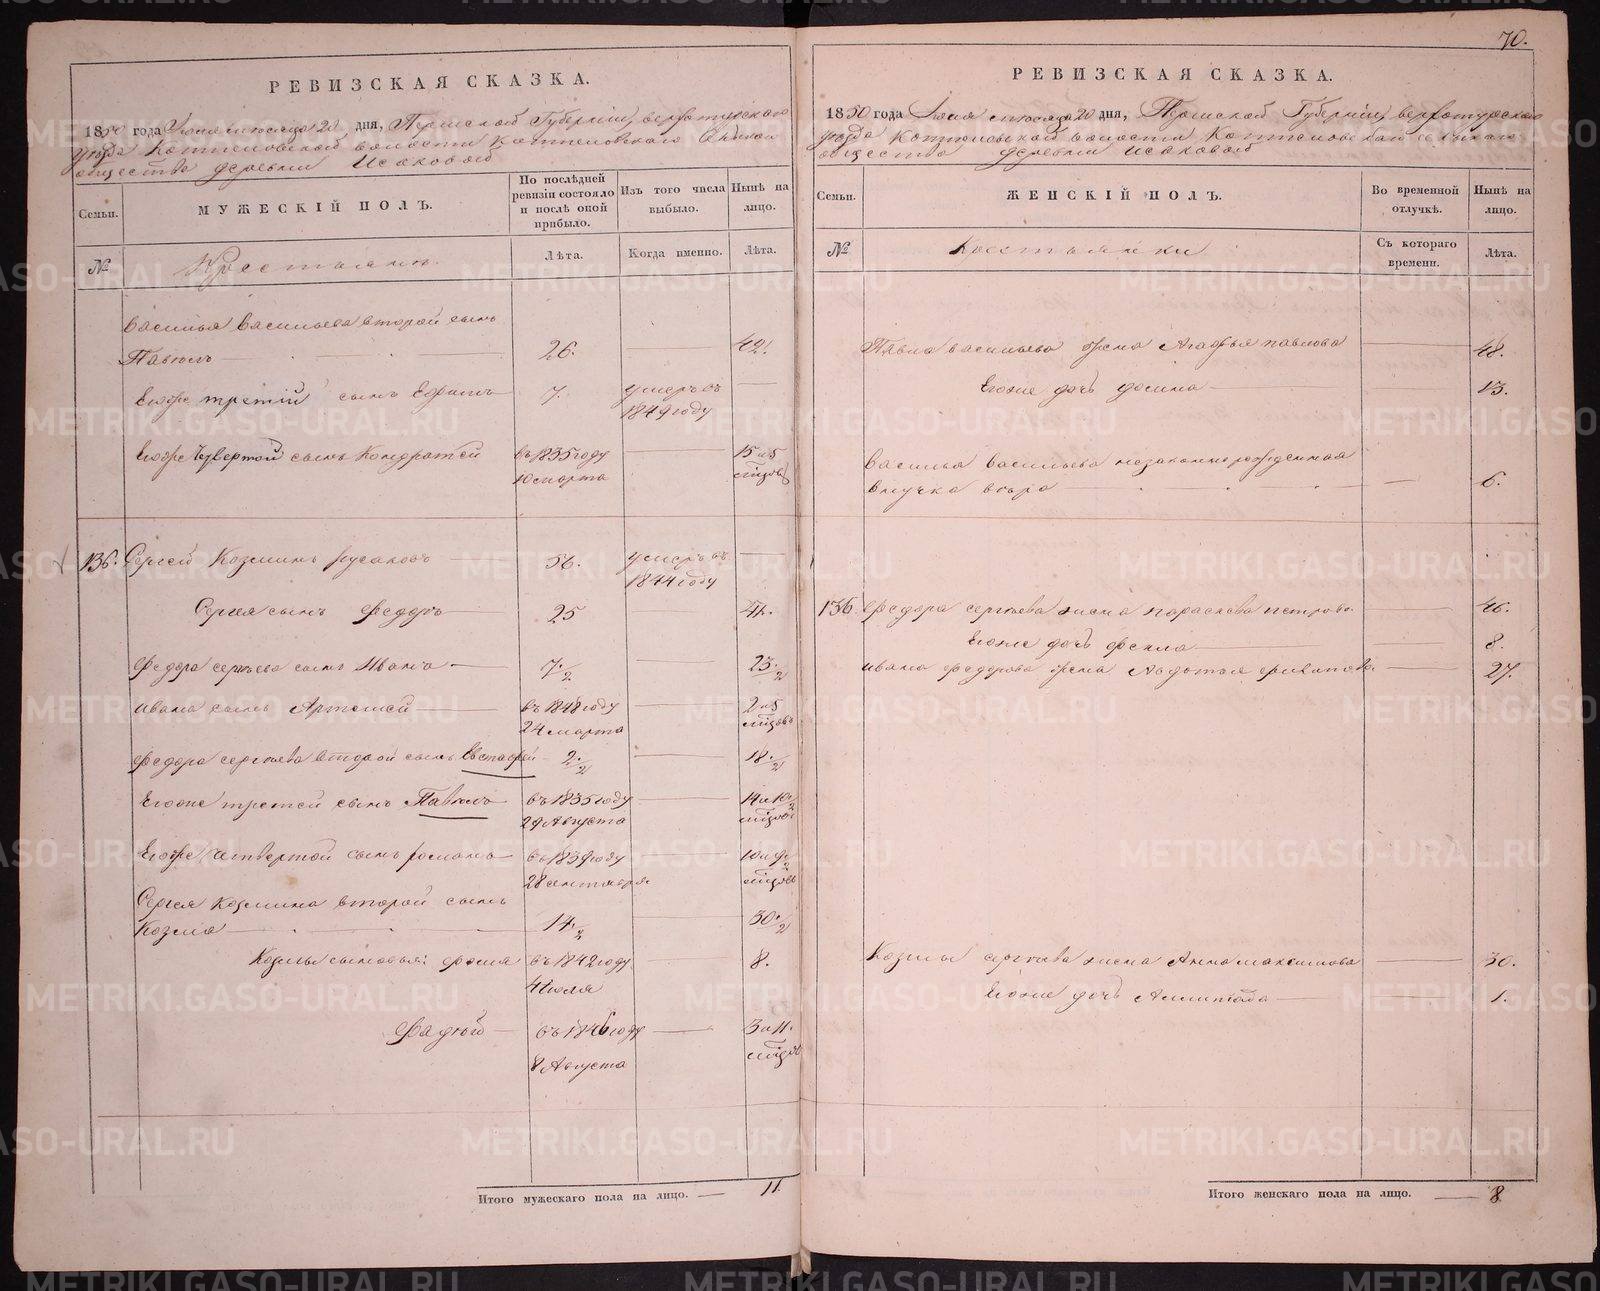 70.
РЕВИЗСКАЯ СКАЗКА.
1850 года Июля месяца 20 дня, Пермской Губернии, верхотурскаго
уезда Коптеловской волости Коптеловскаго сельскаго
общества деревни Исаковой
Семьи.
МУЖЕСКІЙ ПОЛЪ.
По послѣдней ревизіи состояло и послѣ оной прибыло.
Изъ того числа выбыло.
Нынѣ на лицо.
№
Крестьяне.
Лѣта.
Когда именно.
Лѣта.
Василья Васильева второй сынъ
Павелъ 26. 42.
Егоже третій сынъ Ефимъ 7. умеръ въ
1849 году
Егоже Четвертой сынъ Кондратей въ 1835 году 15 и 5
10 марта мѣсяцовъ
136. Сергей Козминъ Русаковъ 56. умеръ въ
1844 году
Сергея сынъ Федоръ 25 41.
Федора сергѣева сынъ Иванъ 7 1/2 23 1/2
Ивана сынъ Артемей въ 1848 году 2 и 5
24 марта мѣсяцовъ
Федора сергѣева второй сынъ Евстафей 2 1/2 18 1/2
Егоже третей сынъ Павелъ въ 1835 году 14 и 10 1/2
29 Августа мѣсяцовъ
Егоже четвертой сынъ Романъ въ 1839 году 10 и 9 1/2
28 сентября мѣсяцовъ
Сергея Козмина второй сынъ
Козма 14 1/2 30 1/2
Козмы сыновья: Фома въ 1842 году 8.
4 Июля
Фадѣй въ 1846 году 3 и 11.
8 Августа мѣсяцовъ
Итого мужескаго пола на лицо. — 11.
РЕВИЗСКАЯ СКАЗКА.
1850 года Июля месяца 20 дня, Пермской Губернии, верхотурскаго
уезда Коптеловской волости Коптеловскаго сельскаго
общества деревни Исаковой
Семьи.
ЖЕНСКІЙ ПОЛЪ.
Во временной отлучкѣ.
Нынѣ на лицо.
№
Крестьянки
Съ котораго времени.
Лѣта.
Павла васильева Жена Агафья павлова 48.
Егоже дочь 13.
Василья Васильева незаконнорожденная
внучка 6.
136 Федора сергѣева жена параскева петрова 46.
Егоже дочь Фекла 8.
Ивана федорова жена Авдотья 27.
Козмы сергѣева жена Анна максимова 30.
Егоже дочь 1.
Итого женскаго пола на лицо. — 8
METRIKI.GASO-URAL.RU